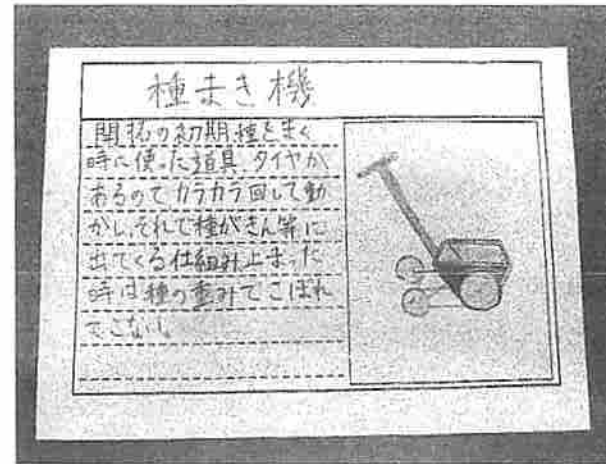 種まき機
開拓の初期、種をまく
時に使った道具、タイヤが
あるのでカラカラ回して動
かし、それで種がきん等に
出てくる仕組み止まった
時は種の重みでこぼれ
てこない。